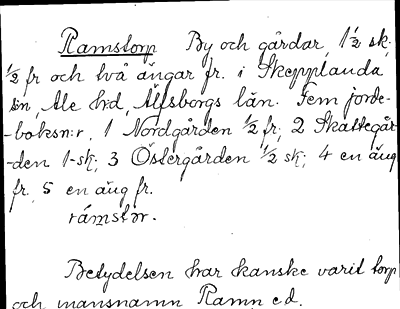 Ramstorp By och gårdar, 1 1/2 sk,
1/2 fr och två ängar fr. i Skepplanda
sn, Ale hd, Älfsborgs län. Fem jorde-
-boksn:r, 1 Nordgården 1/2 fr; 2 Skattegår-
-den 1 sk; 3 Östergården 1/2 sk; 4 en äng
fr, 5 en äng fr.
rámstər.
Betydelsen har kanske varit torp
och mansnamn Ramn e.d.